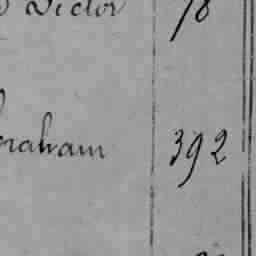 Victor 78
braham 392